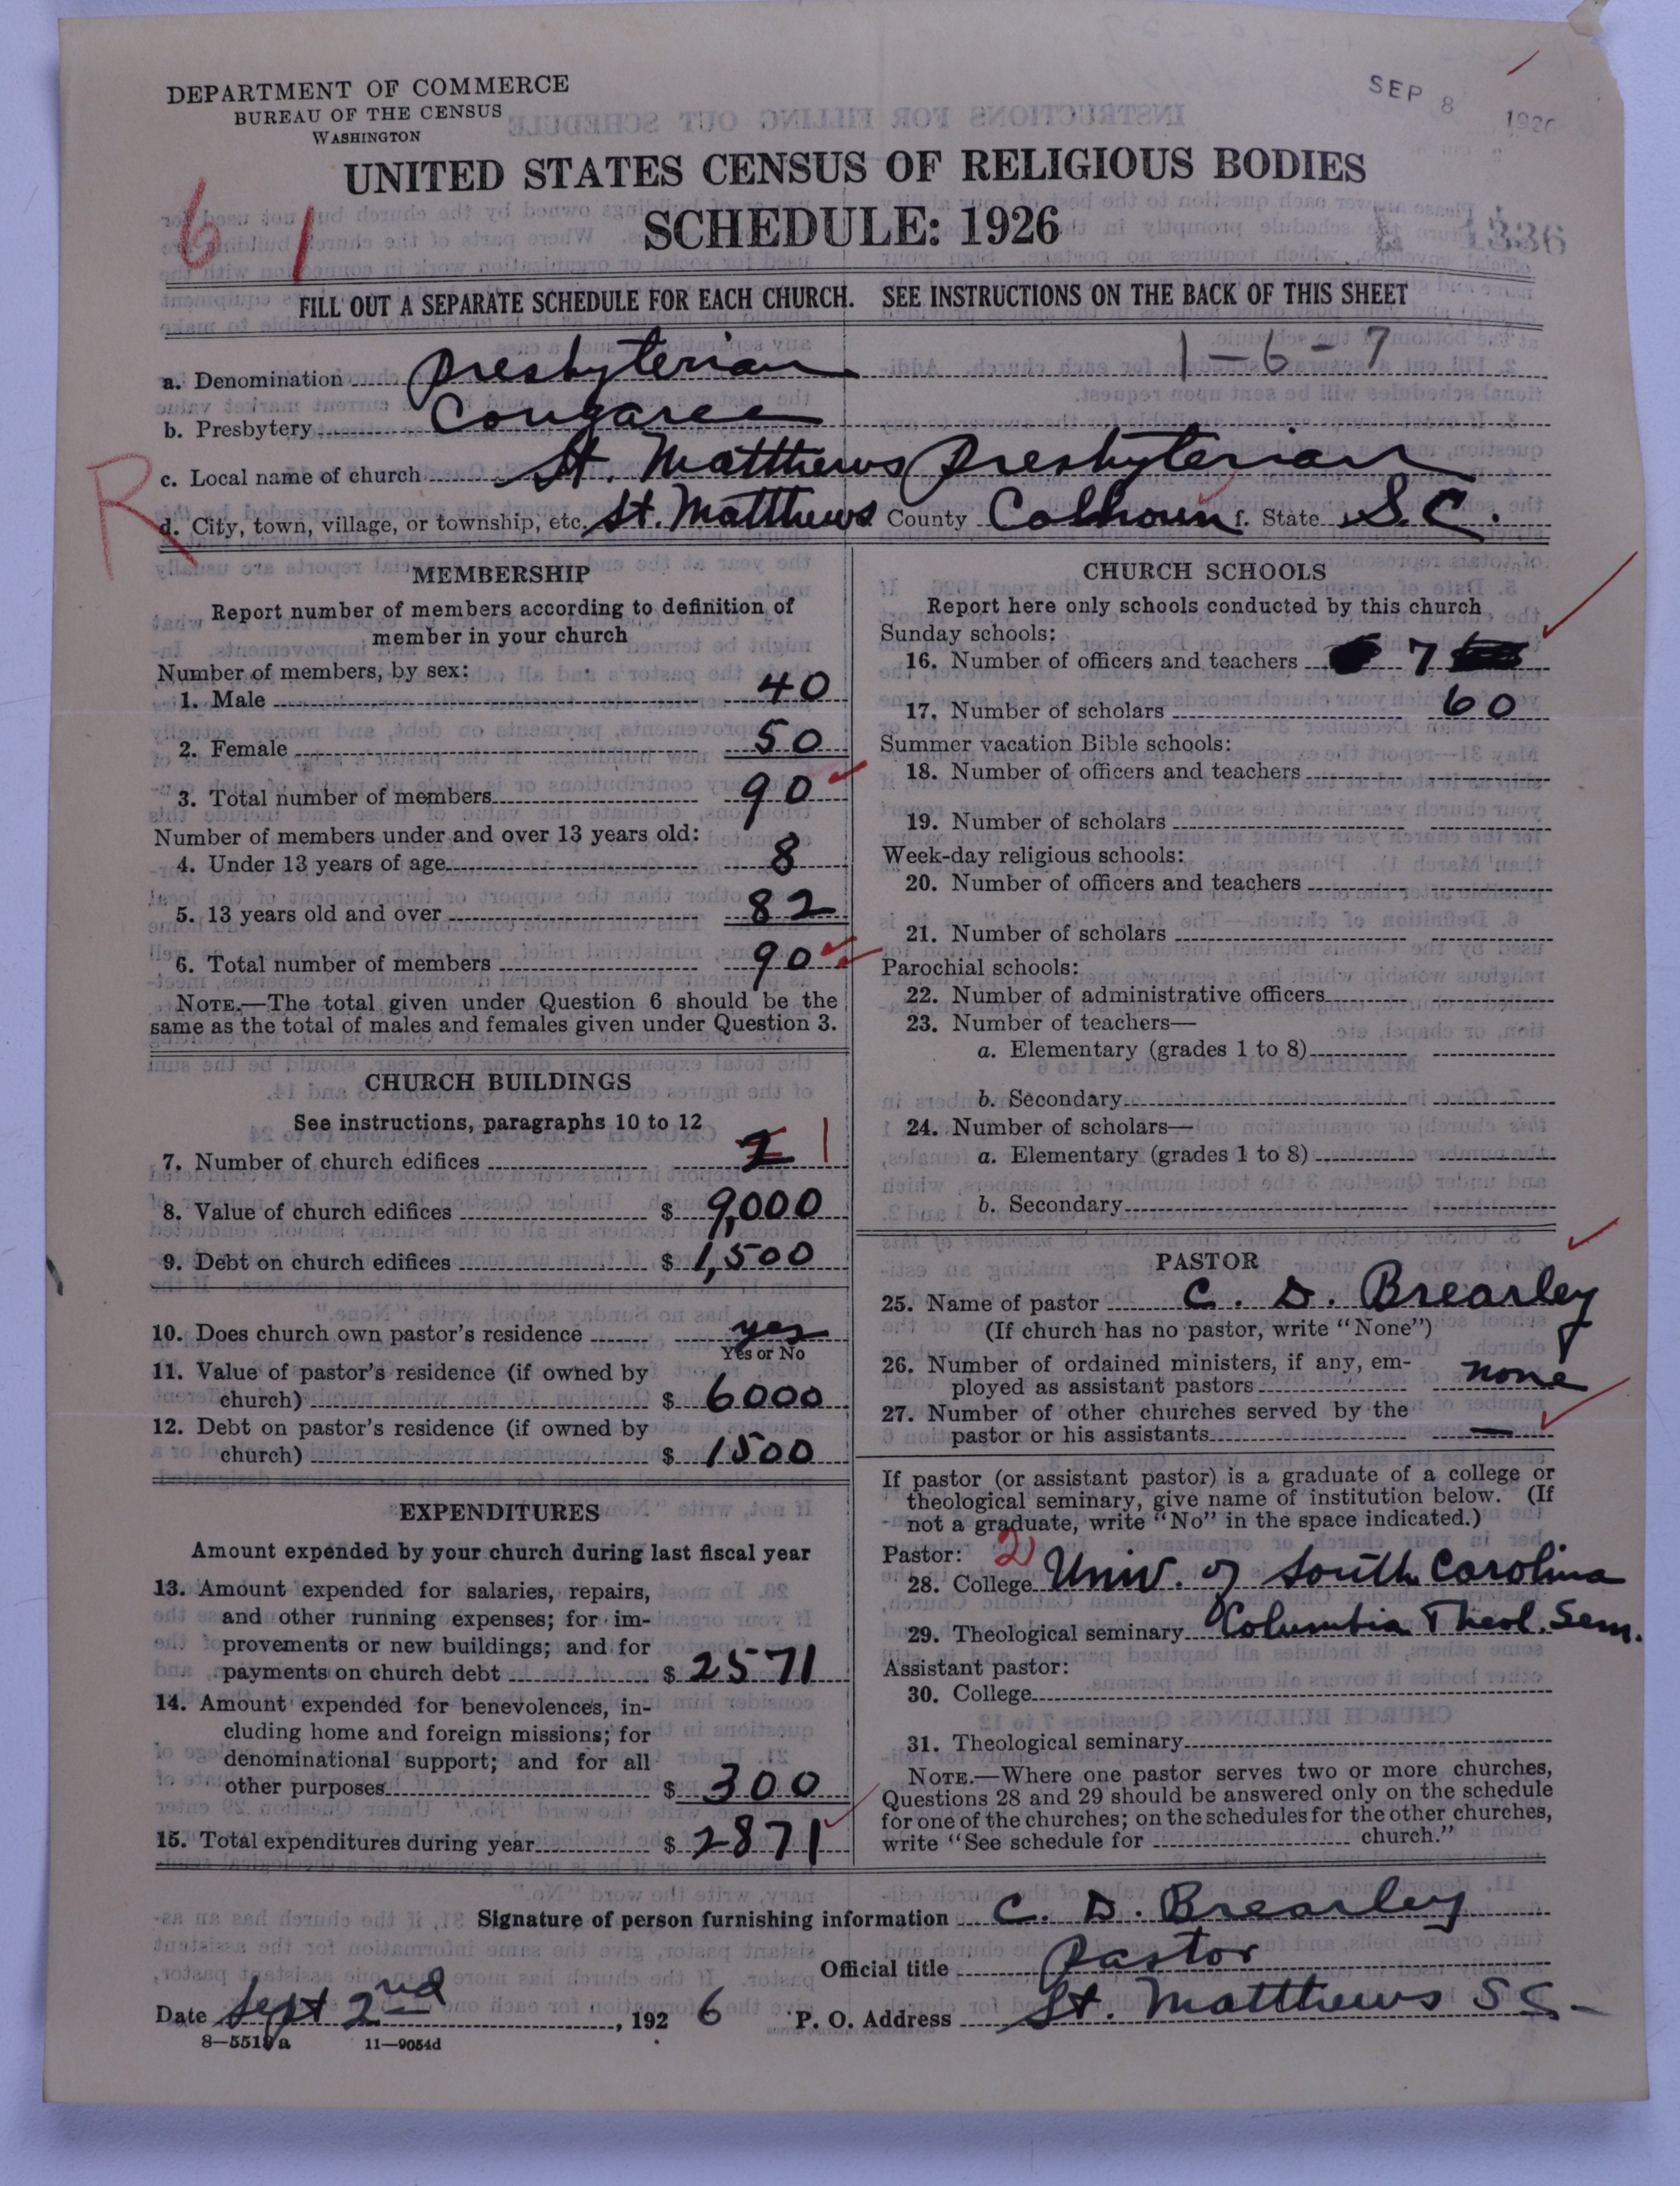 DEPARTMENT OF COMMERCE
BUREAU OF THE CENSUS
WASHINGTON
SEP 8 1926
UNITED STATES CENSUS OF RELIGIOUS BODIES
SCHEDULE: 1926
6 1
1336
FILL OUT A SEPARATE SCHEDULE FOR EACH CHURCH. SEE INSTRUCTIONS ON THE BACK OF THIS SHEET
a. Denomination Presbyterian 1-6-7
b. Presbytery Congaree
R
c. Local name of church St. Matthews Presbyterian
d. City, town, village, or township, etc. St. Matthews County Calhoun f. State S.C.
MEMBERSHIP
Report number of members according to definition of
member in your church
Number of members, by sex:
1. Male 40
2. Female 50
3. Total number of members 90
Number of members under and over 13 years old:
4. Under 13 years of age 8
5. 13 years old and over 82
6. Total number of members 90
NOTE.—The total given under Question 6 should be the
same as the total of males and females given under Question 3.
CHURCH BUILDINGS
See instructions, paragraphs 10 to 12
7. Number of church edifices 2 1
8. Value of church edifices $ 9,000
9. Debt on church edifices $ 1,500
10. Does church own pastor's residence yes
Yes or No
11. Value of pastor's residence (if owned by
church) $ 6000
12. Debt on pastor's residence (if owned by
church) $ 1500
EXPENDITURES
Amount expended by your church during last fiscal year
13. Amount expended for salaries, repairs,
and other running expenses; for im-
provements or new buildings; and for
payments on church debt $ 2571
14. Amount expended for benevolences, in-
cluding home and foreign missions; for
denominational support; and for all
other purposes $ 300
15. Total expenditures during year $ 2871
CHURCH SCHOOLS
Report here only schools conducted by this church
Sunday schools:
16. Number of officers and teachers 7
17. Number of scholars 60
Summer vacation Bible schools:
18. Number of officers and teachers
19. Number of scholars
Week-day religious schools:
20. Number of officers and teachers
21. Number of scholars
Parochial schools:
22. Number of administrative officers
23. Number of teachers—
a. Elementary (grades 1 to 8)
b. Secondary
24. Number of scholars—
a. Elementary (grades 1 to 8)
b. Secondary
PASTOR
25. Name of pastor C. D. Brearley
(If church has no pastor, write "None")
26. Number of ordained ministers, if any, em-
ployed as assistant pastors none
27. Number of other churches served by the
pastor or his assistants —
If pastor (or assistant pastor) is a graduate of a college or
theological seminary, give name of institution below. (If
not a graduate, write "No" in the space indicated.)
Pastor: 2
28. College Univ. of South Carolina
29. Theological seminary Columbia Theol. Sem.
Assistant pastor:
30. College
31. Theological seminary
NOTE.—Where one pastor serves two or more churches,
Questions 28 and 29 should be answered only on the schedule
for one of the churches; on the schedules for the other churches,
write "See schedule for church."
Signature of person furnishing information C. D. Brearley
Official title Pastor
Date Sept 2nd, 1926 P. O. Address St. Matthews S C
8—5518 a 11—9054d